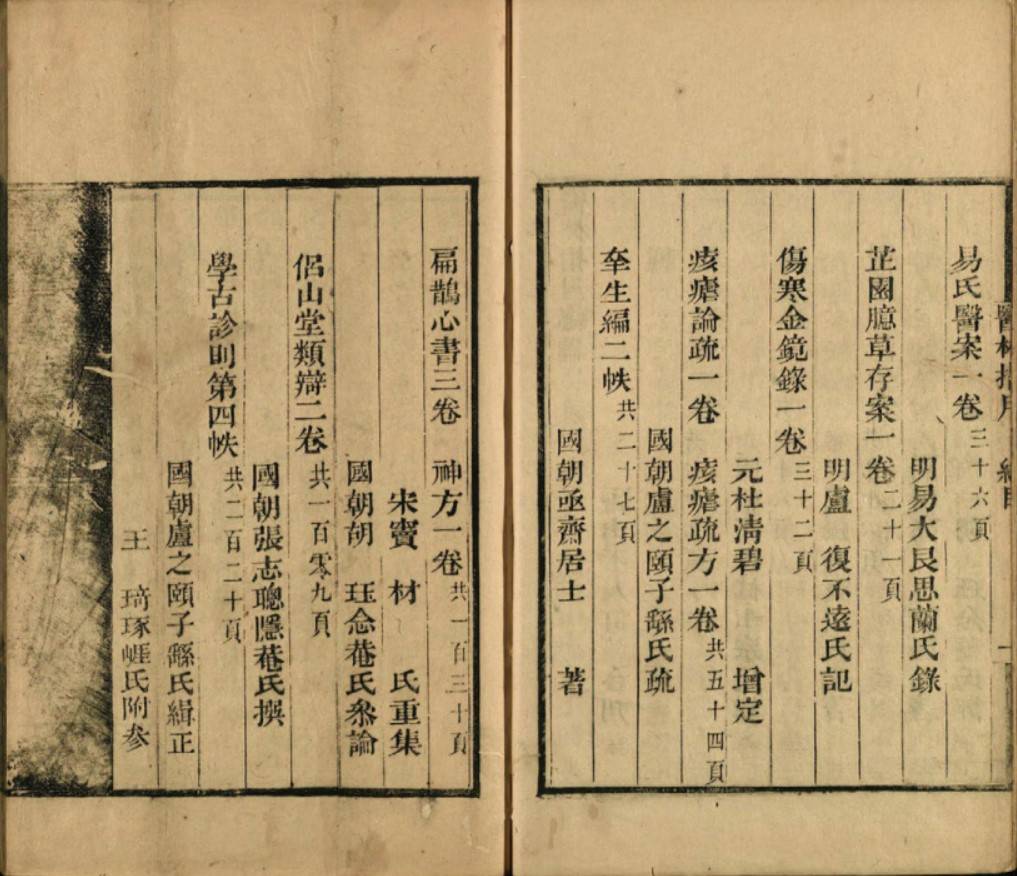 醫林指月 總目 一
易氏醫案一卷三十六頁
明易大艮思蘭氏錄
芷園臆草存案一卷二十一頁
明盧 復不遠氏記
傷寒金鏡錄一卷三十二頁
元杜淸碧 增定
痎瘧論疏一卷 痎瘧疏方一卷共五十四頁
國朝盧之頤子繇氏疏
羍生編二帙共二十七頁
國朝亟齋居士 著
扁鵲心書三卷 神方一卷共一百三十頁
宋竇 材 氏重集
國朝胡 珏念菴氏叅論
侶山堂類辯二卷共一百零九頁
國朝張志聰隱菴氏撰
學古診則第四帙共二百二十頁
國朝盧之頤子繇氏緝正
王 琦琢崕氏附参